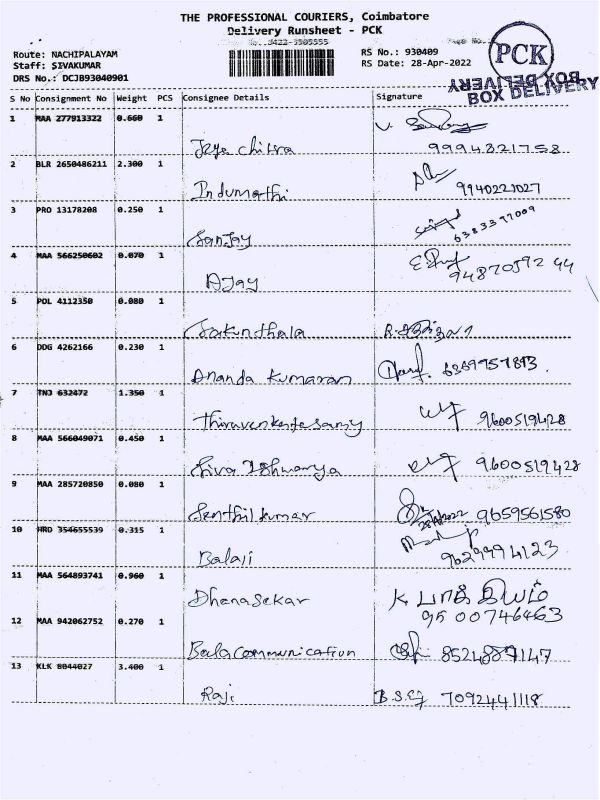 THE PROFESSIONAL COURIERS, Coimbatore
Delivery Runsheet - PCK
Route: NACHIPALAYAM
Staff: SIVAKUMAR
DRS No.: DCJB93040901
RS No.: 930409
RS Date: 28-Apr-2022
PCK
BOX DELIVERY
BOX DELIVERY
S No Consignment No Weight PCS Consignee Details Signature
1 MAA 277913322 0.660 1
Jaya chitra 9994821758
2 BLR 2650486211 2.300 1
Indumathi 9940221027
3 PRO 13178208 0.250 1
Sanjay 6383397009
4 MAA 566250602 0.070 1
AJay 9487059244
5 POL 4112350 0.080 1
Sakunthala
6 DDG 4262166 0.230 1
Ananda Kumaran 6369957893.
7 TNJ 632472 1.350 1
Thiruvenkatasamy 9600519428
8 MAA 566049071 0.450 1
Siva Ishwarya 9600519428
9 MAA 285720850 0.080 1
Senthil kumar 9659561580
10 HRO 354655539 0.315 1
Balaji 9629994123
11 MAA 564893741 0.960 1
Dhanasekar K பாக்கியம்
9500746463
12 MAA 942062752 0.270 1
Bala communication 8524889147
13 KLK 8044027 3.400 1
Raji 7092441118